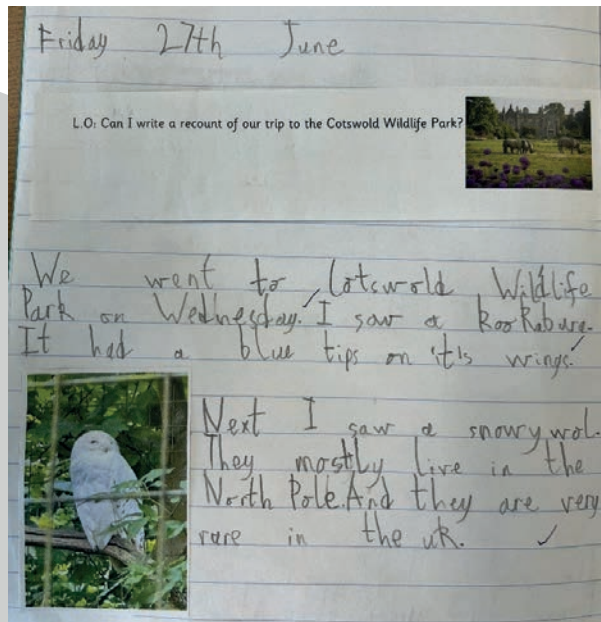 Friday 27th June
L.O: Can I write a recount of our trip to the Cotswold Wildlife Park?
We went to Cotswold Wildlife
Park on Wednesday. I saw a kooRabura.
It had a blue tips on it's wings.
Next I saw a snowy wol.
They mostly live in the
North Pole. And they are very
rare in the uk.